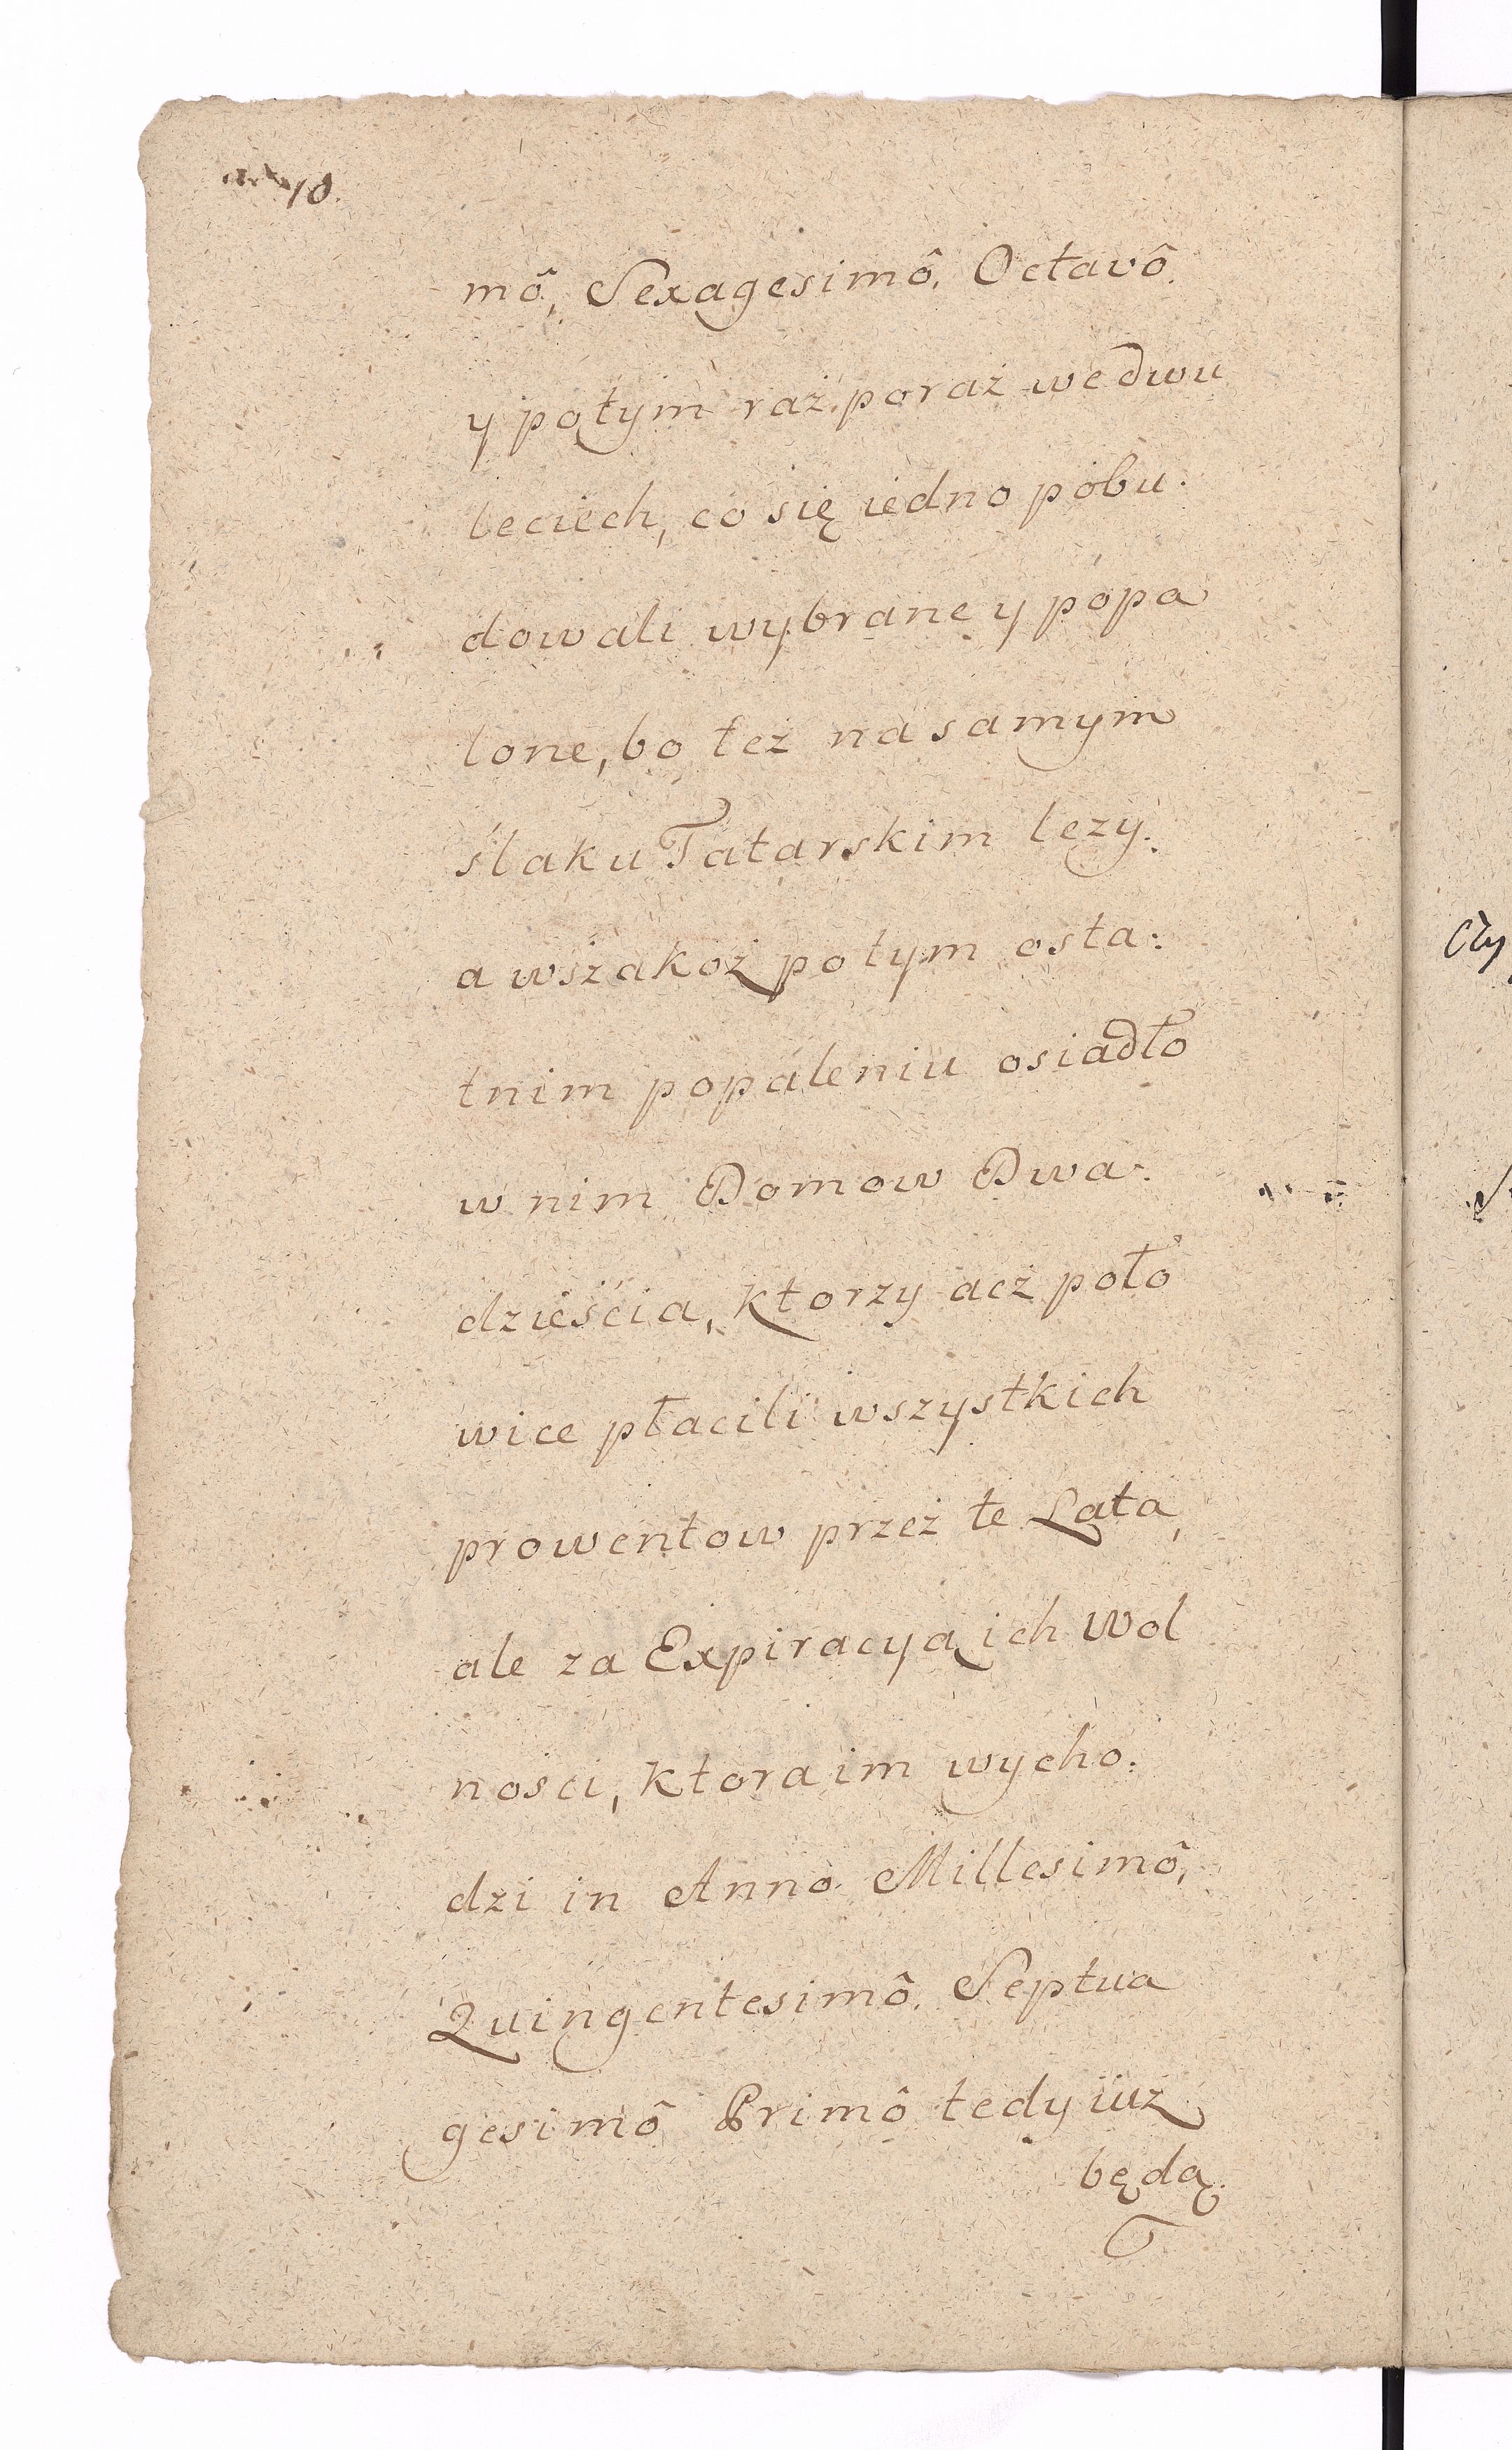 18.
mô, Sexagesimô, Octavô.
y potym raz, poraz we dwu
leciech, co się iedno pobu:
dowali wybrane y popa
lone, bo tez na samym
slaku Tatarskim lezy.
a wszakoz potym osta:
tnim popaleniu osiadło
w nim Domow Dwa:
dzieścia, ktorzy acz poło
wice płacili wszystkich
prowentow przez te Lata,
ale za Expiracyą ich wol
nosci, ktora im wycho:
dzi in Anno Millesimô,
Quingentesimô, Septua
gesimô Primô tedy iuz
będą